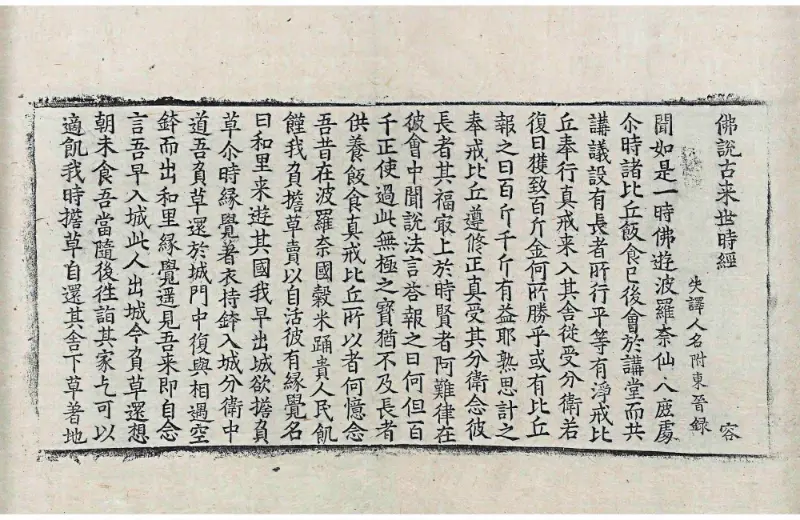 佛說古来世時經 容
失譯人名附東晉録
聞如是一時佛遊波羅奈仙人鹿處
尒時諸比丘飯食已後會於講堂而共
講議設有長者所行平等有淨戒比
丘奉行真戒来入其舍從受分衛若
復日獲致百斤金何所勝乎或有比丘
報之曰百斤千斤有益耶熟思計之
奉戒比丘遵修正真受其分衛念彼
長者其福㝡上於時賢者阿難律在
彼會中聞說法言荅報之曰何但百
千正使過此無極之寳猶不及長者
供養飯食真戒比丘所以者何憶念
吾昔在波羅奈國榖米踊貴人民飢
饉我負擔草賣以自活彼有縁覺名
曰和里来遊其國我早出城欲擔負
草尒時縁覺著衣持鉢入城分衛中
道吾負草還於城門中復與相遇空
鉢而出和里縁覺遥見吾来即自念
言吾早入城此人出城今負草還想
朝未食吾當隨後徃詣其家乞可以
適飢我時擔草自還其舍下草著地